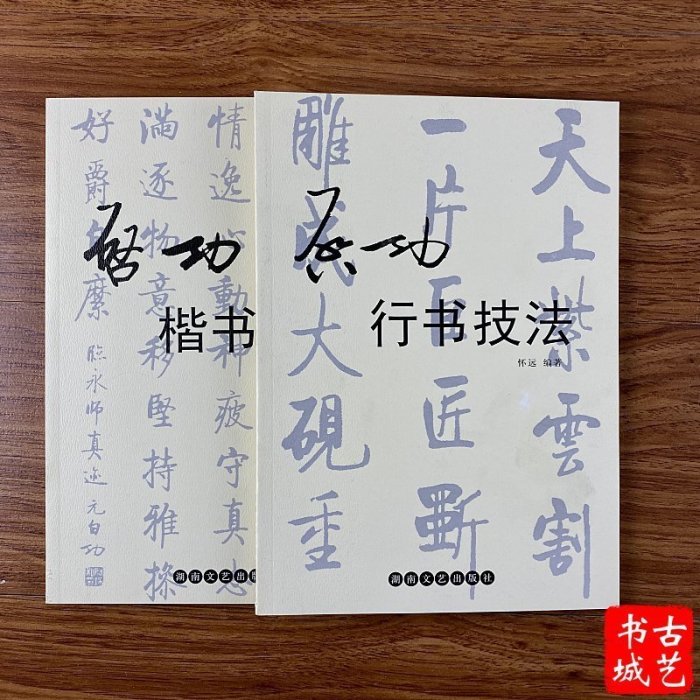 情逸心動神疲守真志
滿逐物意移堅持雅操
好爵自縻
臨永師真迹 元白功
啓功
楷书
湖南文艺出版
天上紫雲割
一片巨匠斲
雕成大硯重
启功
行书技法
怀远 编著
湖南文艺出版社
古艺
书城